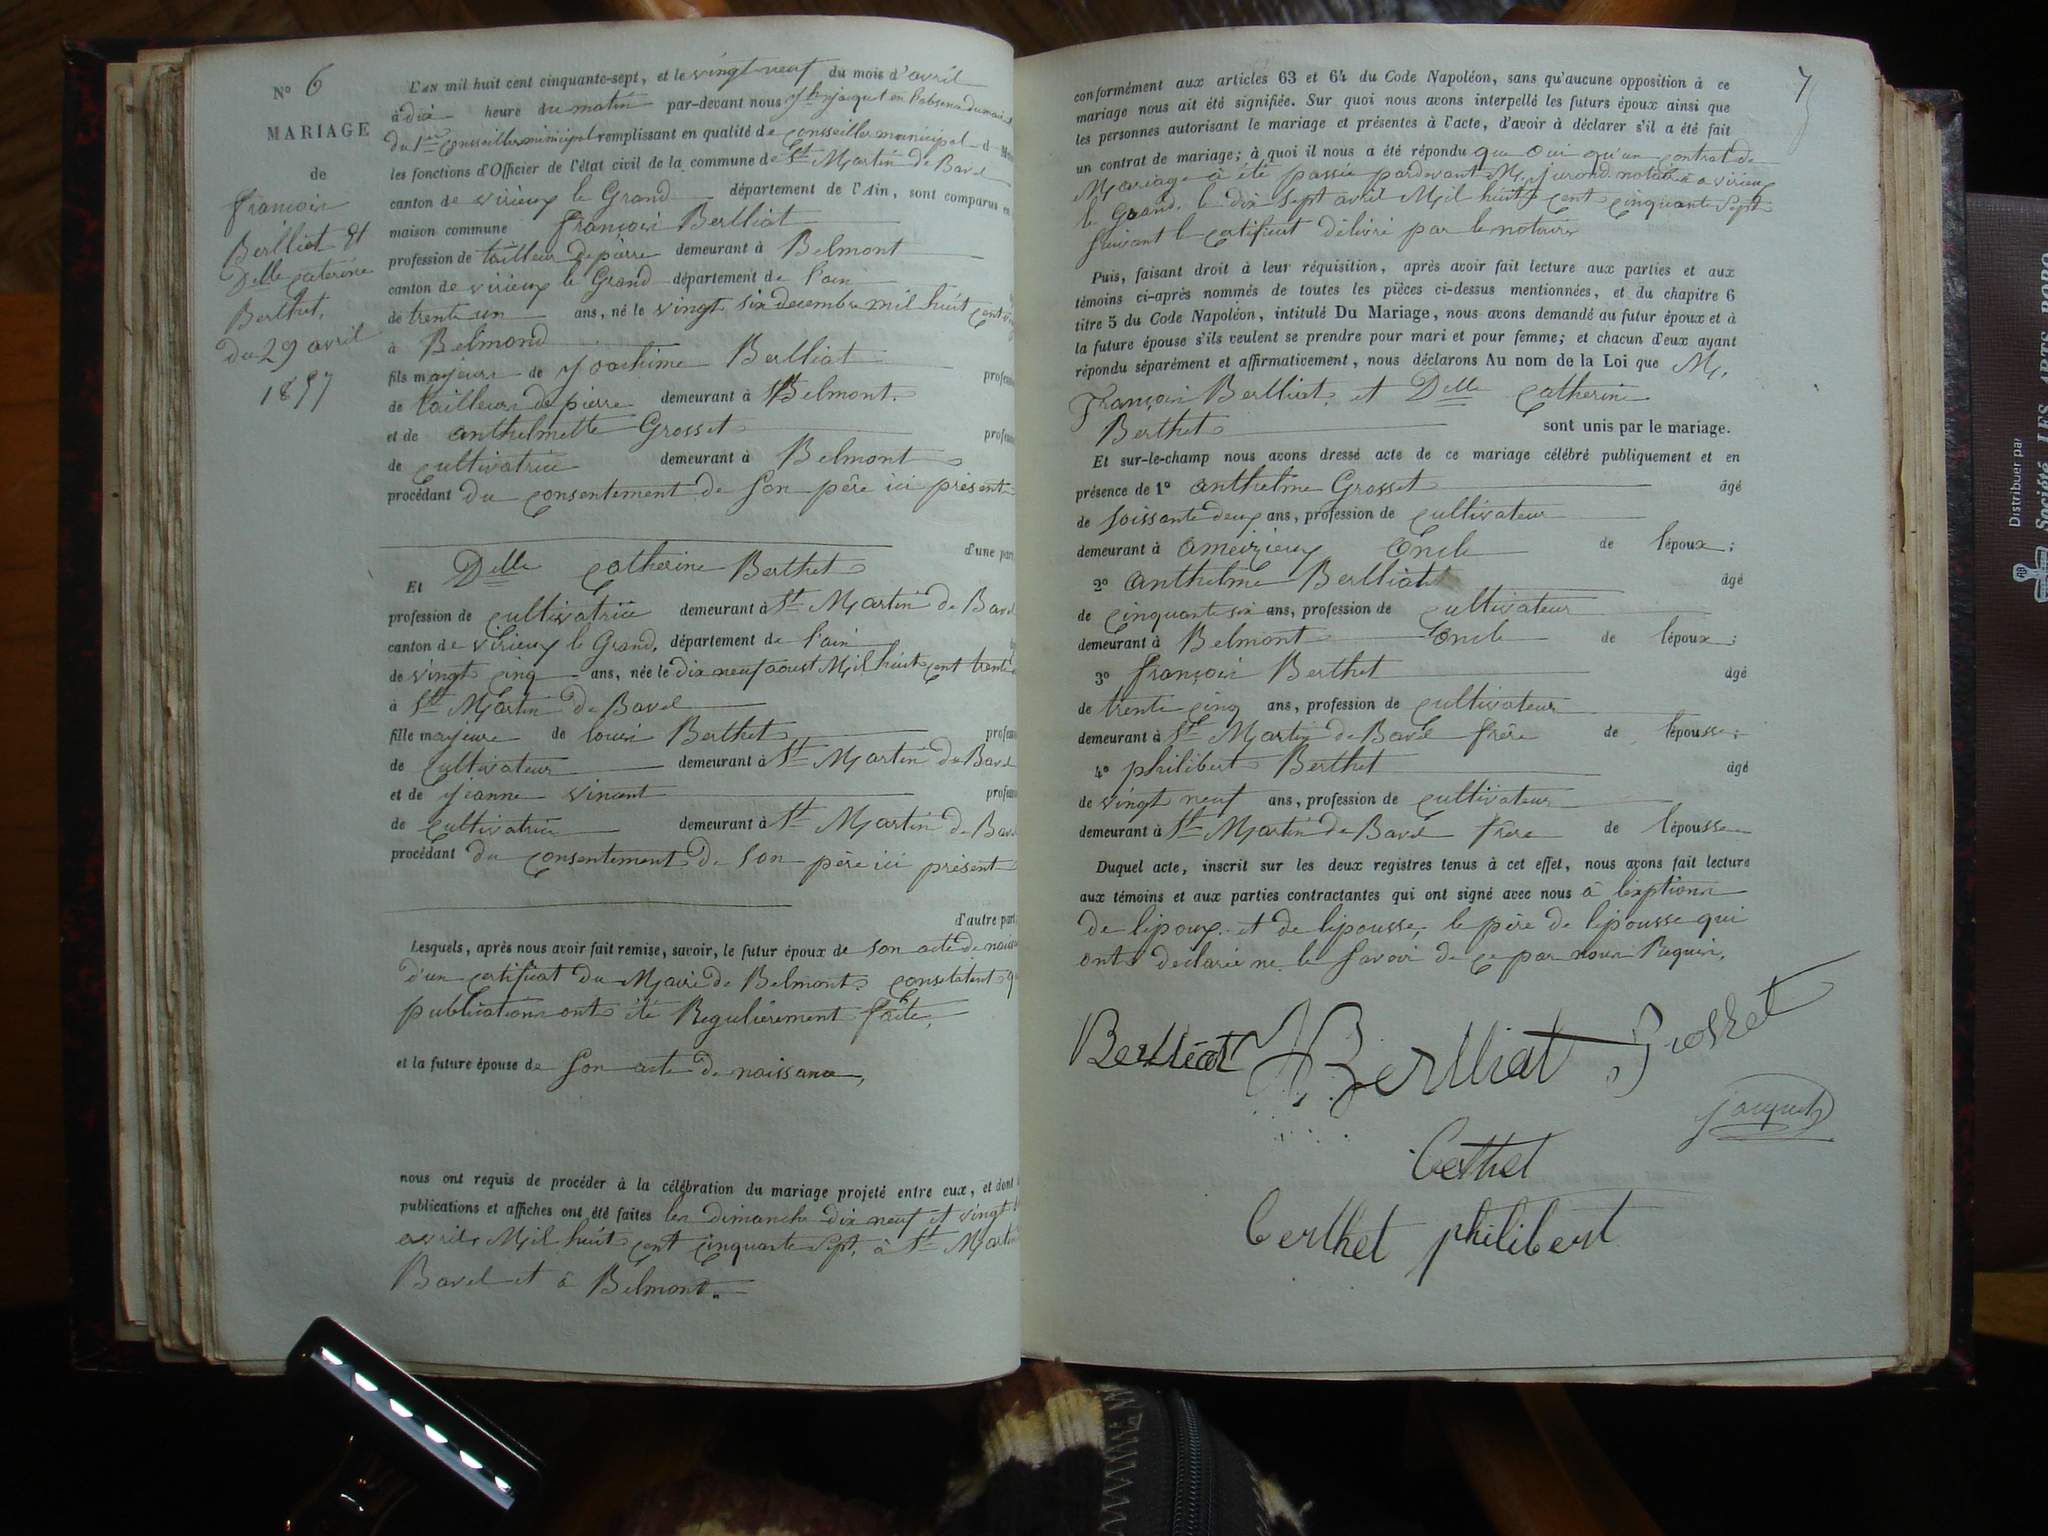 N° 6
MARIAGE
de
françois
Berlliat et
Delle caterine
Berthet,
du 29 avril
1857
L'AN mil huit cent cinquante-sept, et le vingt neuf du mois d'avril
à dix heure du matin par-devant nous jacquet en l'absence du maire
du 1er Consseiller municipal remplissant en qualité de Consseiller municipal
les fonctions d'Officier de l'état civil de la commune de St Martin de Bavel
canton de virieux le Grand département de l'Ain, sont comparus en
maison commune françois Berlliat
profession de tailleur de pierre demeurant à Belmont
canton de virieux le Grand département de l'ain
de trente un ans, né le vingt six decembre mil huit cent
à Belmond
fils majeur de joachime Berlliat profess
de tailleur de pierre demeurant à Belmont.
et de anthelmette Grosset profess
de cultivatrice demeurant à Belmont
procédant du consentement de son père ici présent
d'une part
Et Delle catherine Berthet
profession de cultivatrice demeurant à St Martin de Bavel
canton de virieux le Grand, département de l'ain
de vingt cinq ans, née le dix neuf aoust Mil huit cent trente
à St Martin de Bavel
fille majeure de louis Berthet profess
de cultivateur demeurant à St Martin de Bavel
et de jeanne vincent profess
de cultivatrice demeurant à St Martin de Bavel
procédant du consentement de son père ici présent
d'autre part
Lesquels, après nous avoir fait remise, savoir, le futur époux de son acte de naiss
d'un certificat du Maire de Belmont constatent q
publications ont été Regulièrement faite,
et la future épouse de son acte de naissance,
nous ont requis de procéder à la célébration du mariage projeté entre eux, et dont
publications et affiches ont été faites les dimanche dix neuf et vingt
avril Mil huit cent cinquante Sept, à St Martin
Bavel et à Belmont.
7
conformément aux articles 63 et 64 du Code Napoléon, sans qu'aucune opposition à ce
mariage nous ait été signifiée. Sur quoi nous avons interpellé les futurs époux ainsi que
les personnes autorisant le mariage et présentes à l'acte, d'avoir à déclarer s'il a été fait
un contrat de mariage; à quoi il nous a été répondu que oui qu'un contrat de
Mariage à été passée pardevant M. jurond notaire à virieux
le Grand. le dix sept avril Mil huit cent cinquante Sept
suivant le certificat délivré par le notaire
Puis, faisant droit à leur réquisition, après avoir fait lecture aux parties et aux
témoins ci-après nommés de toutes les pièces ci-dessus mentionnées, et du chapitre 6
titre 5 du Code Napoléon, intitulé Du Mariage, nous avons demandé au futur époux et à
la future épouse s'ils veulent se prendre pour mari et pour femme; et chacun d'eux ayant
répondu séparément et affirmativement, nous déclarons Au nom de la Loi que M.
François Berlliat, et Delle Catherine
Berthet sont unis par le mariage.
Et sur-le-champ nous avons dressé acte de ce mariage célébré publiquement et en
présence de 1° anthelme Grosset âgé
de soissante deux ans, profession de cultivateur
demeurant à ameizieux Oncle de l'époux;
2° anthelme Berlliat âgé
de cinquante six ans, profession de cultivateur
demeurant à Belmont Oncle de l'époux;
3° françois Berthet âgé
de trente cinq ans, profession de cultivateur
demeurant à St Martin de Bavel frère de l'épousse;
4° philibert Berthet âgé
de vingt neuf ans, profession de cultivateur
demeurant à St Martin de Bavel frère de l'épousse
Duquel acte, inscrit sur les deux registres tenus à cet effet, nous avons fait lecture
aux témoins et aux parties contractantes qui ont signé avec nous à l'exption
de l'époux. et de l'épousse, le père de l'épousse qui
ont déclarée ne le savoir de ce par nous Requis.
Berlliat Berlliat Groshet
jacquet
berthet
berthet philibert
Distribuer par
Société LES ARTS